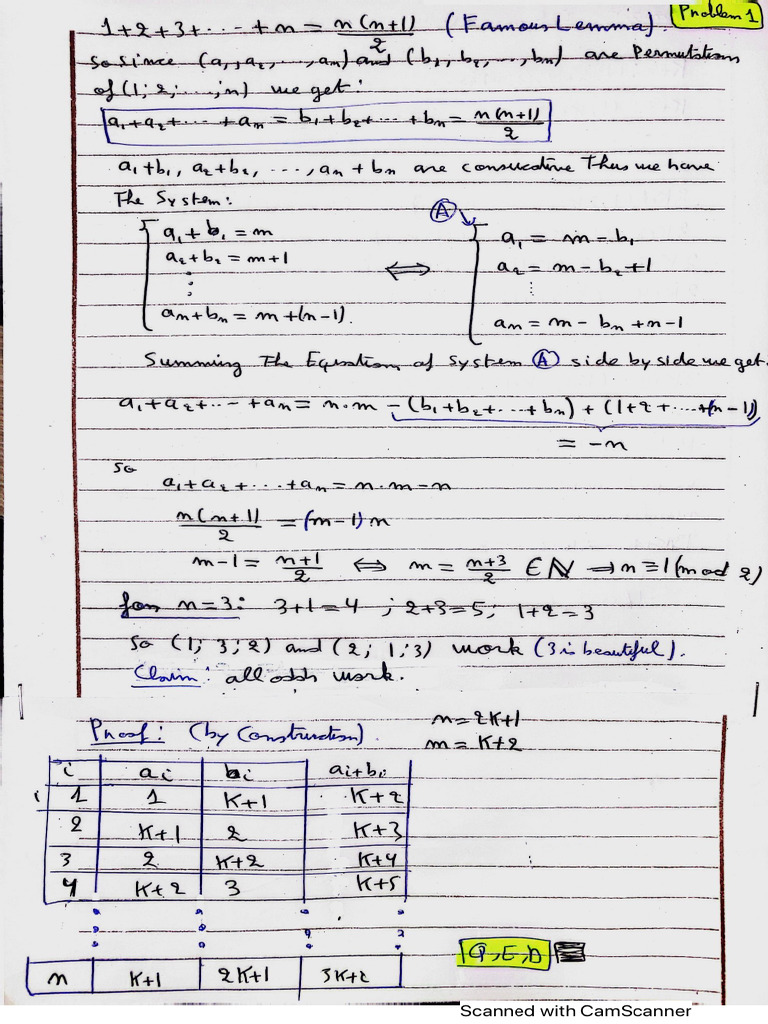 Problem 1
1+2+3+...+n = n(n+1)/2 (Famous Lemma).
so since (a₁, a₂, ..., aₙ) and (b₁, b₂, ..., bₙ) are Permutations
of (1; 2; ...; n) we get:
a₁+a₂+...+aₙ = b₁+b₂+...+bₙ = n(n+1)/2
a₁+b₁, a₂+b₂, ..., aₙ+bₙ are consucative Thus we have
The System:
a₁+b₁ = m ⟺ Ⓐ a₁ = m-b₁
a₂+b₂ = m+1 a₂ = m-b₂+1
⋮ ⋮
aₙ+bₙ = m+(n-1). aₙ = m-bₙ+n-1
Summing The Equations of System Ⓐ side by side we get.
a₁+a₂+...+aₙ = n.m -(b₁+b₂+...+bₙ)+(1+2+....+(n-1))
= -n
so
a₁+a₂+...+aₙ = n.m-n
n(n+1)/2 = (m-1)n
m-1 = n+1/2 ⟺ m = n+3/2 ∈ ℕ ⟹ n≡1(mod 2)
for n=3: 3+1=4 ; 2+3=5; 1+2=3
so (1; 3; 2) and (2; 1; 3) work (3 is beautiful).
Claim: all odds work.
Proof: (by Construction). n=2K+1
m=K+2
i aᵢ bᵢ aᵢ+bᵢ
1 1 K+1 K+2
2 K+1 2 K+3
3 2 K+2 K+4
4 K+2 3 K+5
n K+1 2K+1 3K+2
Q,E,D
Scanned with CamScanner